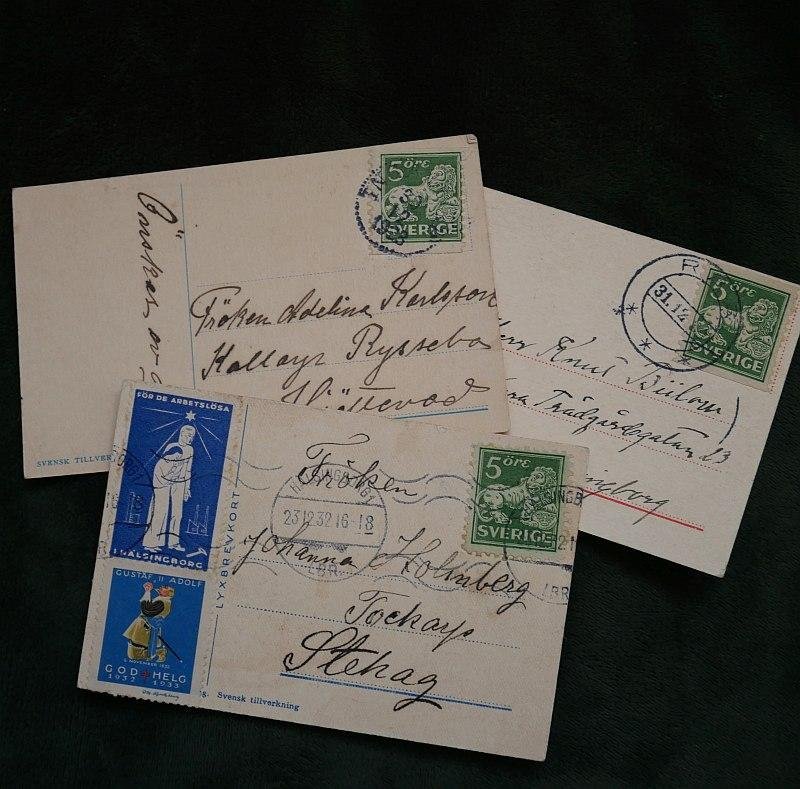 Önskas av
5 öre
SVERIGE
Fröken Adelina Karlsson
Kallarp Ryssebo
SVENSK TILLVER
R
31.12
5 öre
SVERIGE
Herr Knut
Trädgårdsgatan 23
FÖR DE ARBETSLÖSA
I HÄLSINGBORG
GUSTAF II ADOLF
6 NOVEMBER 1932
GOD HELG
1932 1933
LYXBREVKORT
HÄLSINGBORG 1
23 12 32 16-18
LBR
5 öre
SVERIGE
Fröken
Johanna Holmberg
Tockarp
Stehag
Svensk tillverkning